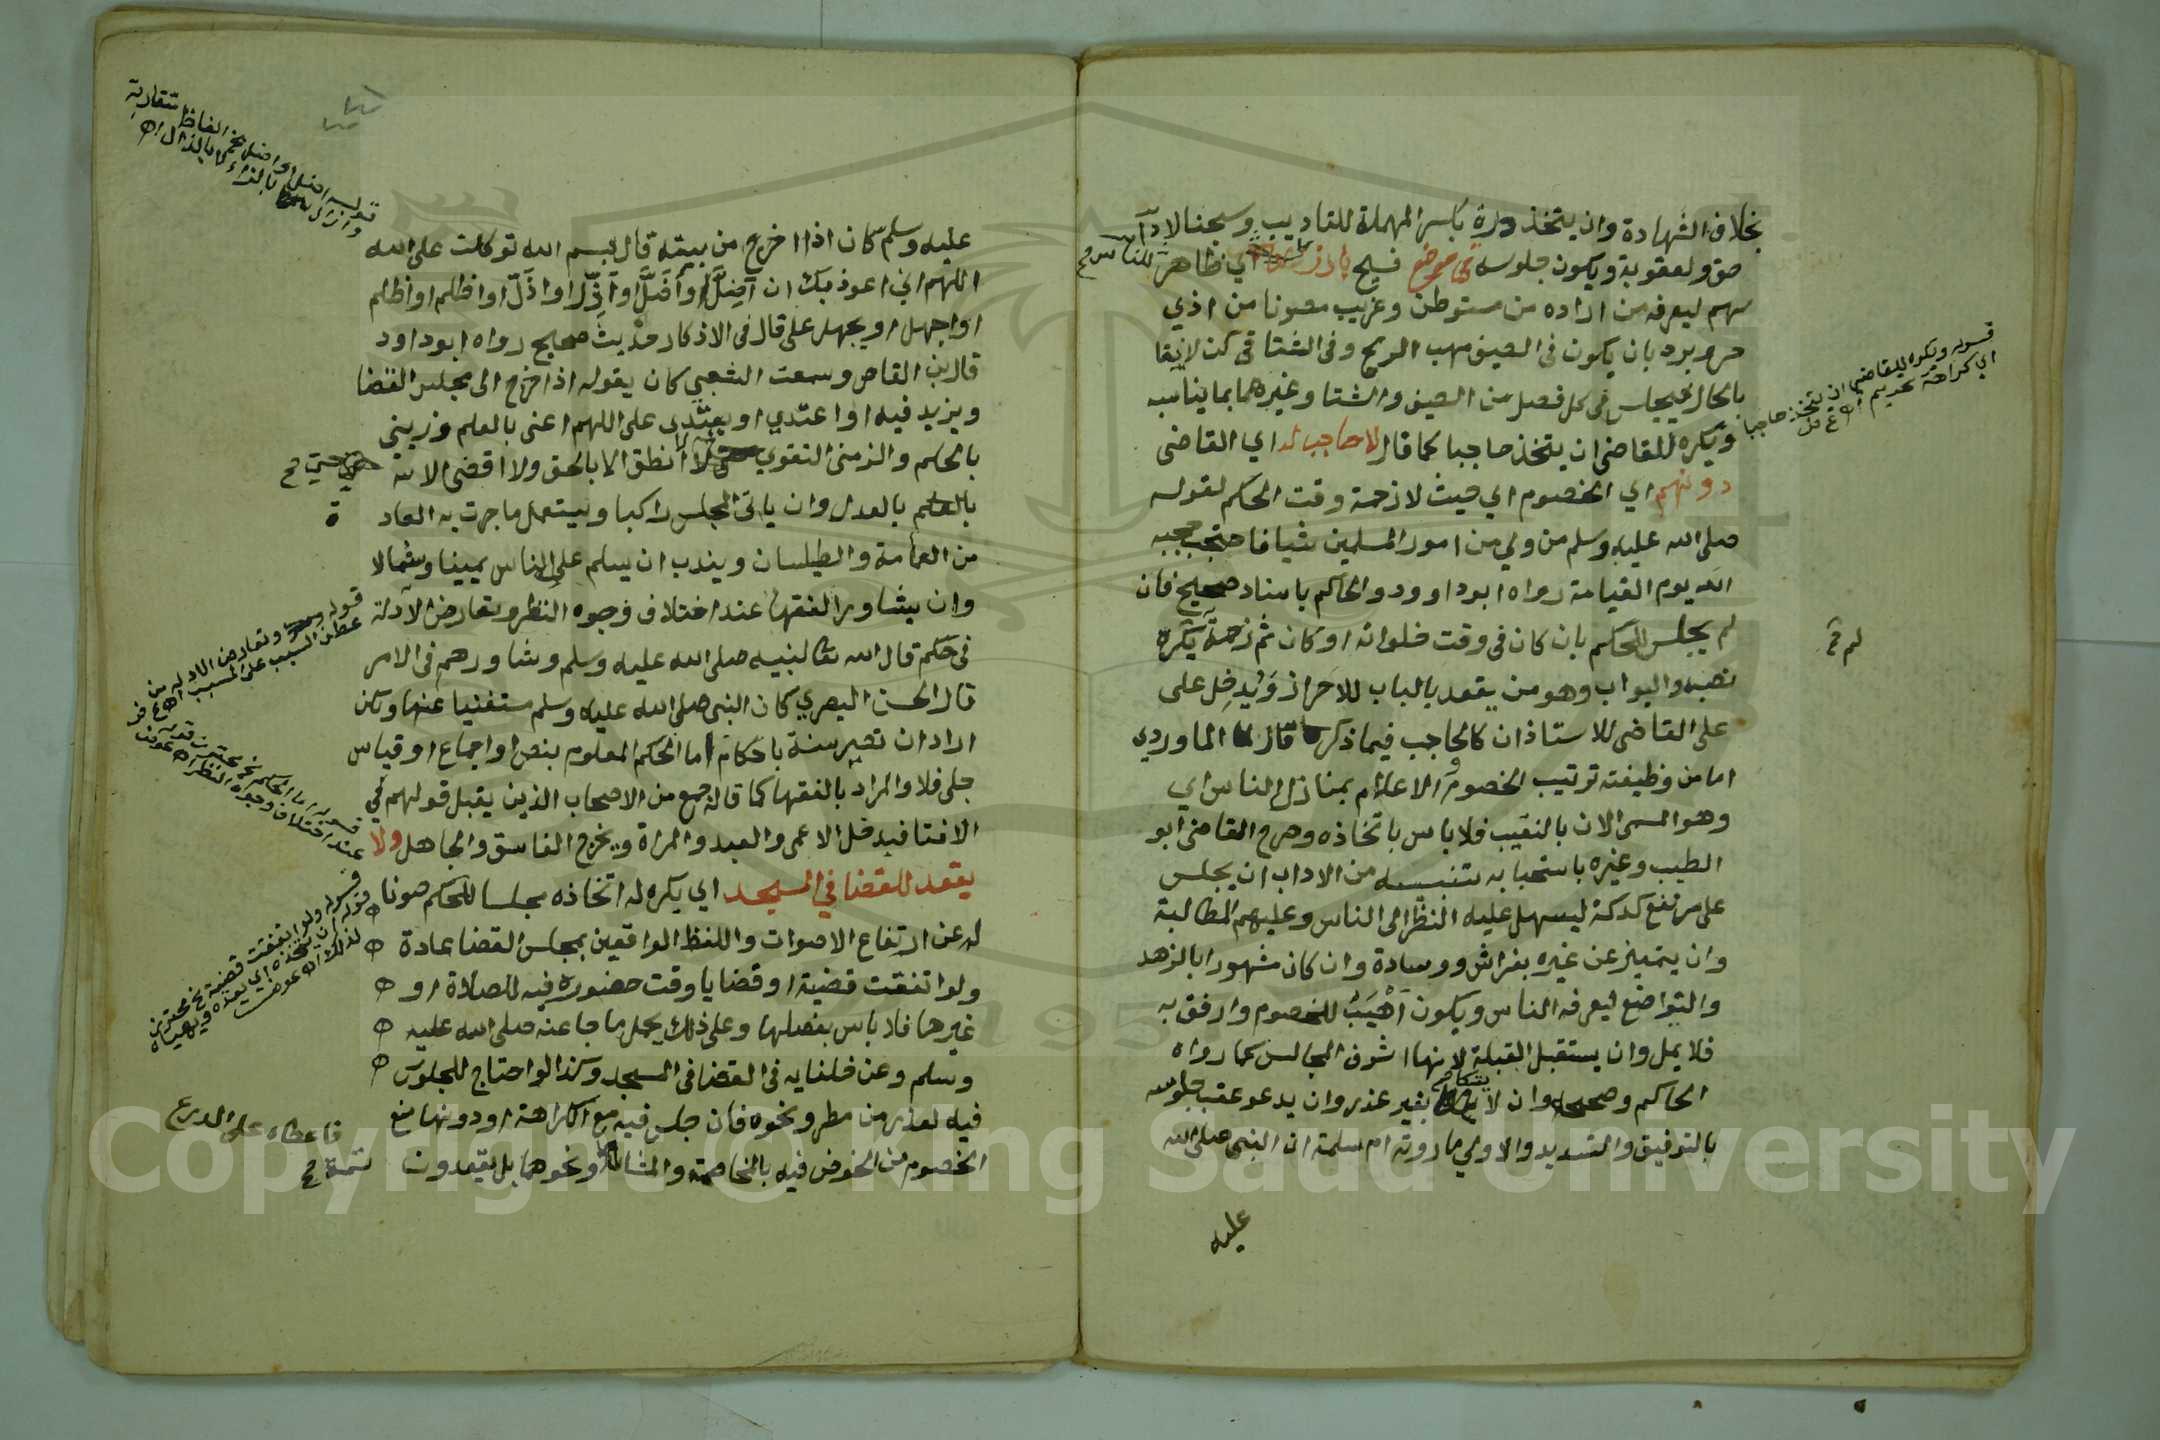 بخلاف الشهادة وان يتخذ درة بكسر المهملة للتاديب وسجنا لاداء
حق ولعقوبة ويكون جلوسه في موضع فسيح بارز اي ظاهر للناس صح
سهم ليعرفه من اراده من مستوطن وغريب مصونا من اذي
حر وبرد بان يكون في الصيف مهب الريح وفي الشتا في كن لايقا
بالحال فيجلس في كل فصل من الصيف والشتا وغيرهما بما يناسبه
ويكره للقاضي ان يتخذ حاجبا كما قال لا حاجب له اي القاضي
دونهم اي الخصوم اي حيث لا زحمة وقت الحكم لقوله
صلى الله عليه وسلم من ولي من امور المسلمين شيا فاحتجب حجبه
الله يوم القيامة رواه ابو داوود والحاكم باسناد صحيح فان
لم يجلس للحكم بان كان في وقت خلواته او كان ثم زحمة يكره
نصبه والبواب وهو من يقعد بالباب للاحراز ويدخل على
على القاضي للاستاذان كالحاجب فيما ذكر قال الماوردي
اما من وظيفته ترتيب الخصوم والاعلام بمنازل الناس اي
وهو المسمى الان بالنقيب فلا باس باتخاذه وصرح القاضي ابو
الطيب وغيره باستحبابه تنبيه من الاداب ان يجلس
على مرتفع كدكة ليسهل عليه النظر الى الناس وعليهم المطالبة
وان يتميز عن غيره بفراش ووسادة وان كان مشهورا بالزهد
والتواضع ليعرفه الناس ويكون اهيب للخصوم وارفق به
فلا يمل وان يستقبل القبلة لانها اشرف المجالس كما رواه
الحاكم وصححه وان لا يتكا بغير عذر وان يدعو عقب جلوسه
بالتوفيق والتسديد والاولي ما روته ام سلمة ان النبي صلى الله
عليه
قوله ويكره للقاضي ان يتخذ حاجبا
اي كراهة تحريم اه ع ش
عليه وسلم كان اذا خرج من بيته قال بسم الله توكلت على الله
اللهم اني اعوذ بك ان اضل او اضل او اذل او اذل او اظلم او اظلم
او اجهل او يجهل علي قال في الاذكار حديث صحيح رواه ابو داود
قال بن القاص وسمعت الشعبي كان يقوله اذا خرج الى مجلس القضا
ويزيد فيه او اعتدي او يعتدى علي اللهم اعني بالعلم وزيني
بالحلم والزمني التقوي لا انطق الا بالحق ولا اقضي الا
حتي صح
بالعدل وان ياتي المجلس راكبا ويستعمل ما جرت به العاد
ة
من العمامة والطيلسان ويندب ان يسلم على الناس يمينا وشمالا
وان يشاور الفقها عند اختلاف وجوه النظر وتعارض الادلة
في حكم قال الله تعالى لنبيه صلى الله عليه وسلم وشاورهم في الامر
قال الحسن البصري كان النبي صلى الله عليه وسلم مستغنيا عنها ولكن
اراد ان تصير سنة للحكام اما الحكم المعلوم بنص او اجماع او قياس
جلي فلا والمراد بالفقها كما قاله جمع من الاصحاب الذين يقبل قولهم في
الافتا فيدخل الاعمى والعبد والمراة ويخرج الفاسق والجاهل ولا
يقعد للقضا في المسجد اي يكره له اتخاذه مجلسا للحكم صونا
له عن ارتفاع الاصوات واللغط الواقعين بمجلس القضا عادة
ولو اتفقت قضية او قضايا وقت حضوره فيه لصلاة او
غيرها فلا باس بفصلها وعلى ذلك يحمل ما جا عنه صلى الله عليه
وسلم وعن خلفايه في القضا في المسجد وكذا لو احتاج للجلوس
فيه لعذر من مطر ونحوه فان جلس فيه مع الكراهة او دونها منع
الخصوم من الخوض فيه بالمخاصمة والمشاتمة ونحوهما بل يقعدون
قوله وتعارض الادلة من
عطف السبب على المسبب اه ع ش
قوله اما الحكم محترز قوله
عند اختلاف وجوه النظر اه
قوله ولو اتفقت قضية محترز
قوله اتخاذه اي
Copyright © King Saud University
1957